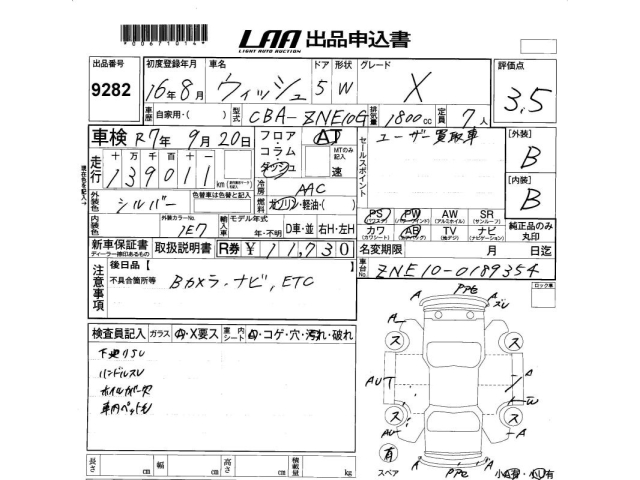 *00671014*
LAA 出品申込書
LIGHT AUTO AUCTION
出品番号 初度登録年月 車名 ドア 形状 グレード 評価点
9282 16年8月 ウィッシュ 5 W X 3.5
車歴 自家用・( ) 型式 CBA-ZNE10G 排気量 1800cc 定員 7人
車検 R7年 9月20日 フロア・コラム・ダッシュ AT MTのみ記入 速
セールスポイント ユーザー買取車 [外装] B
走行 十 万 千 百 十 一
139011 km
現在色を記入→
冷房 AAC
[内装] B
外装色 シルバー 色替車は色替と記入 燃料 ガソリン・軽油・( )
PS (パワステ) PW (パワーウインド) AW (アルミホイル) SR (サンルーフ)
内装色 外装カラーNo. 1E7 輸入車 モデル年式 年・不明 D車・並 右H・左H
カワ (カワシート) AB (エアバッグ) TV (地デジ) ナビ 純正品のみ丸印
新車保証書 ディーラー捺印あるもの 取扱説明書 R券 ¥11,730 名変期限 月 日迄
車台No. ZNE10-0189354
注意事項 後日品【 】
不具合箇所等 Bカメラ.ナビ,ETC
ロック車
検査員記入 ガラス A・X要ス 室内シート A・コゲ・穴・汚れ・破れ
下廻りSU
ハンドルスレ
車内ペット毛
A PPE A
ス ス
AU A
W
ス ス
AU A A
有
スペア A PPE A 小A有・小U有
長さ cm 幅 cm 高さ cm 積載量 kg